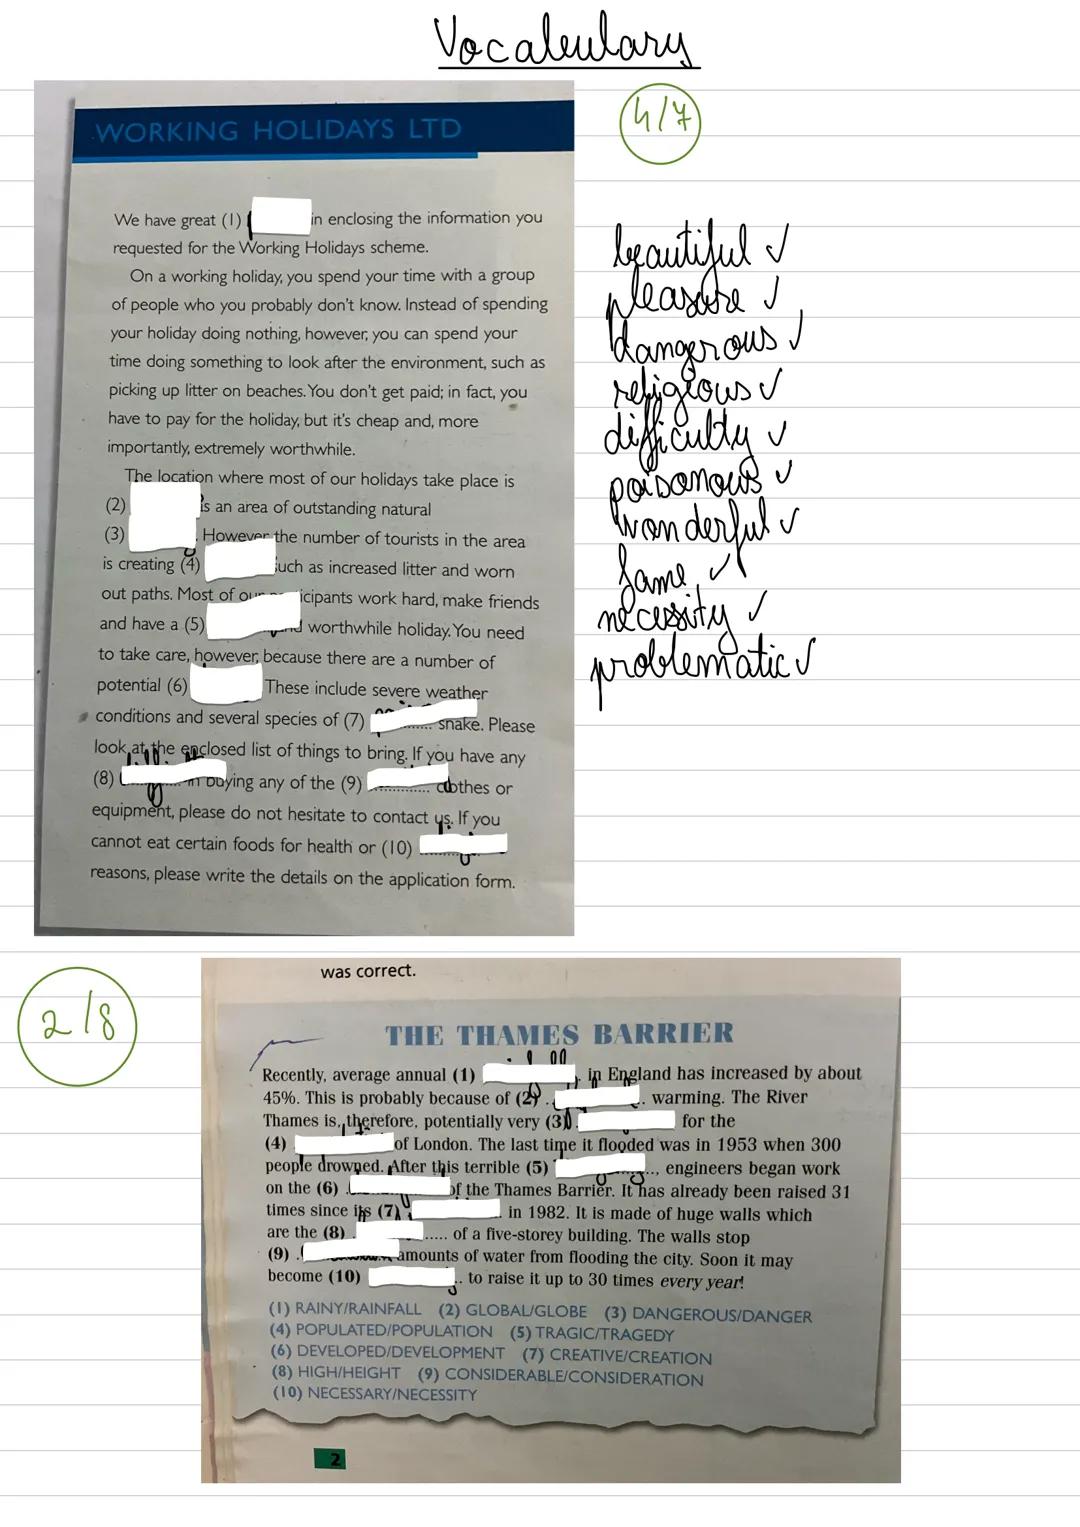 Vocabulary
4/7
WORKING HOLIDAYS LTD
We have great (1) in enclosing the information you
requested for the Working Holidays scheme.
On a working holiday, you spend your time with a group
of people who you probably don't know. Instead of spending
your holiday doing nothing, however, you can spend your
time doing something to look after the environment, such as
picking up litter on beaches. You don't get paid; in fact, you
have to pay for the holiday, but it's cheap and, more
importantly, extremely worthwhile.
The location where most of our holidays take place is
(2) is an area of outstanding natural
(3) . However the number of tourists in the area
is creating (4) such as increased litter and worn
out paths. Most of icipants work hard, make friends
and have a (5) worthwhile holiday. You need
to take care, however, because there are a number of
potential (6) These include severe weather
conditions and several species of (7) ...... snake. Please
look at the enclosed list of things to bring. If you have any
(8) in buying any of the (9) ............ clothes or
equipment, please do not hesitate to contact us. If you
cannot eat certain foods for health or (10)
reasons, please write the details on the application form.
beautiful ✓
pleasure ✓
dangerous ✓
religious ✓
difficulty ✓
poisonous ✓
wonderful ✓
fame ✓
necessity ✓
problematic ✓
2/8
was correct.
THE THAMES BARRIER
Recently, average annual (1) in England has increased by about
45%. This is probably because of (2) warming. The River
Thames is, therefore, potentially very (3) for the
(4) of London. The last time it flooded was in 1953 when 300
people drowned. After this terrible (5) ..., engineers began work
on the (6) of the Thames Barrier. It has already been raised 31
times since its (7) in 1982. It is made of huge walls which
are the (8) ..... of a five-storey building. The walls stop
(9) amounts of water from flooding the city. Soon it may
become (10) .. to raise it up to 30 times every year!
(1) RAINY/RAINFALL (2) GLOBAL/GLOBE (3) DANGEROUS/DANGER
(4) POPULATED/POPULATION (5) TRAGIC/TRAGEDY
(6) DEVELOPED/DEVELOPMENT (7) CREATIVE/CREATION
(8) HIGH/HEIGHT (9) CONSIDERABLE/CONSIDERATION
(10) NECESSARY/NECESSITY
2